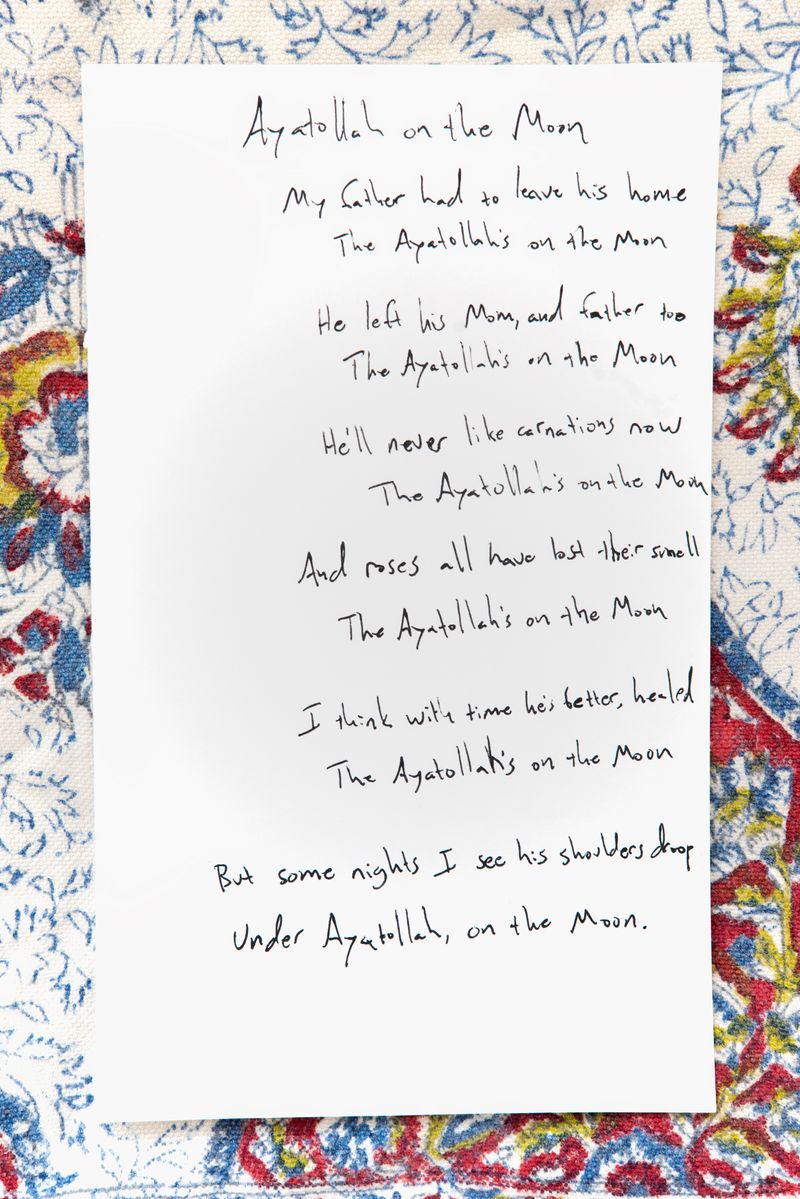 Ayatollah on the Moon
My father had to leave his home
The Ayatollah's on the Moon
He left his Mom, and father too
The Ayatollah's on the Moon
He'll never like carnations now
The Ayatollah's on the Moon
And roses all have lost their smell
The Ayatollah's on the Moon
I think with time he's better, healed
The Ayatollah's on the Moon
But some nights I see his shoulders droop
Under Ayatollah, on the Moon.